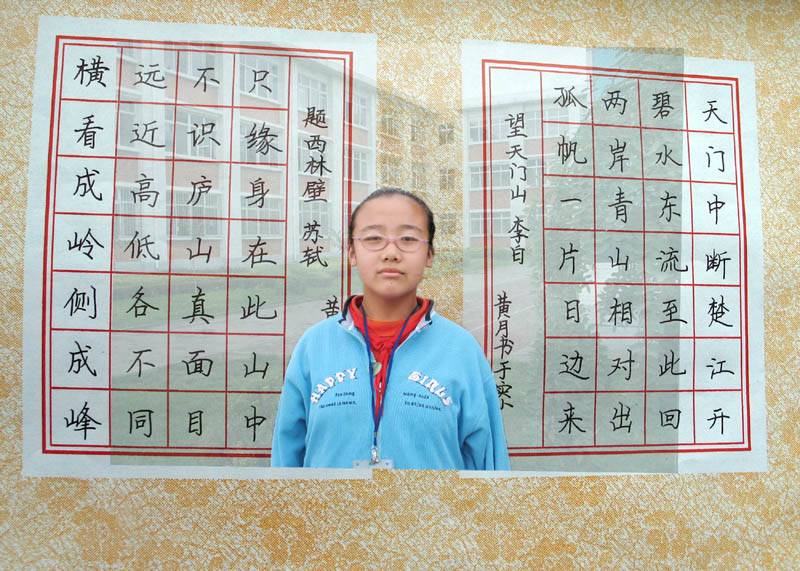 横看成岭侧成峰
远近高低各不同
不识庐山真面目
只缘身在此山中
题西林壁 苏轼
天门中断楚江开
碧水东流至此回
两岸青山相对出
孤帆一片日边来
望天门山 李白
黄月书于实小
HAPPY GIRLS